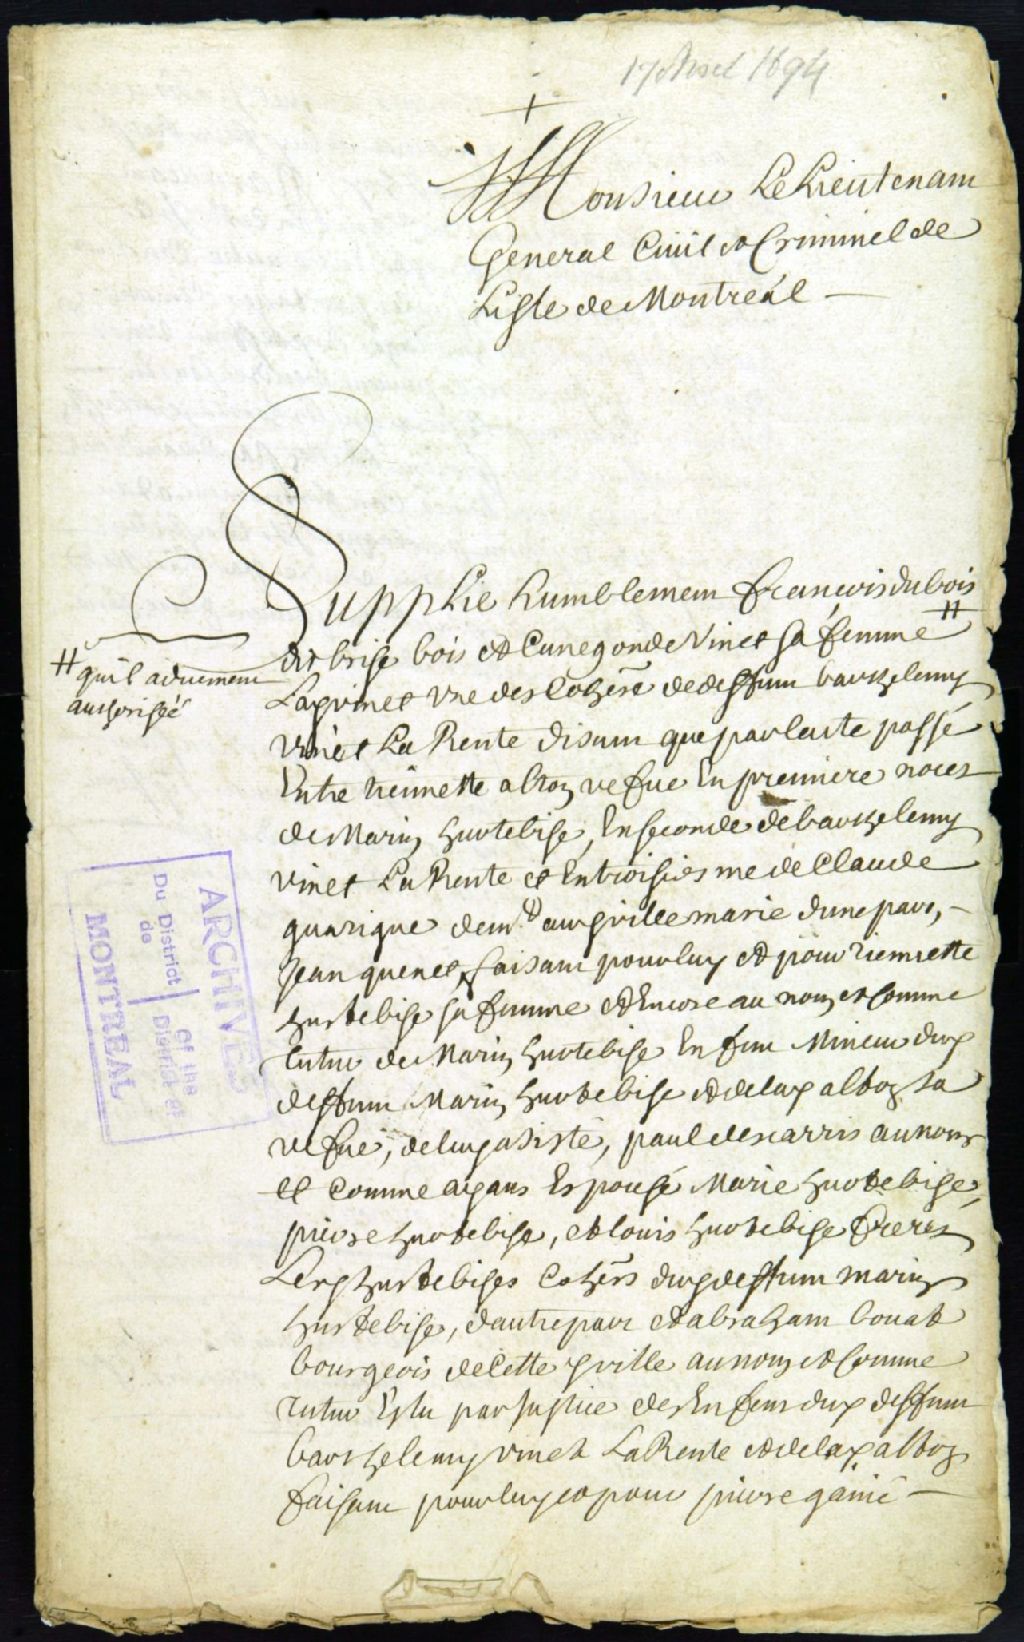 17 Avril 1694
Monsieur Le Lieutenam
General Ciuil & Criminel de
Lisle de Montreal
Supplie humblemem francois dubois
dit brise bois et Cunegonde Vinet sa femme #
# quil a duemem
authorisée
La vinet vne des Cohers de deffum barthelemy
vinet La Rente disam que par lacte passé
Entre Etiennette alton vefue En premiere noces
de Marin hurtebise, En seconde de barthelemy
vinet La Rente et En troisiesme de Claude
guarigue dem^t au ville marie dune part,
Jean quenet, faisam pour luy et pour Etiennette
hurtebise sa femme et Encore au nom et comme
tuteur de Marin hurtebise Enfam Mineur dud
deffum Marin hurtebise et de lad alton sa
vefue, de luy asisté, paul descarris au nom
et comme ayans Espousé Marie hurtebise,
pierre hurtebise, et louis hurtebise freres
Lesd hurtebises Cohers dud deffum marin
hurtebise, dautre part et abraham bouat
bourgeois de Cette ville au nom et comme
tuteur Eslu par Justice des Enfans dud deffum
barthelemy vinet La Rente et de lad alton
faisam pour luy et pour pierre gainié
ARCHIVES
Du District of the
de District of
MONTREAL